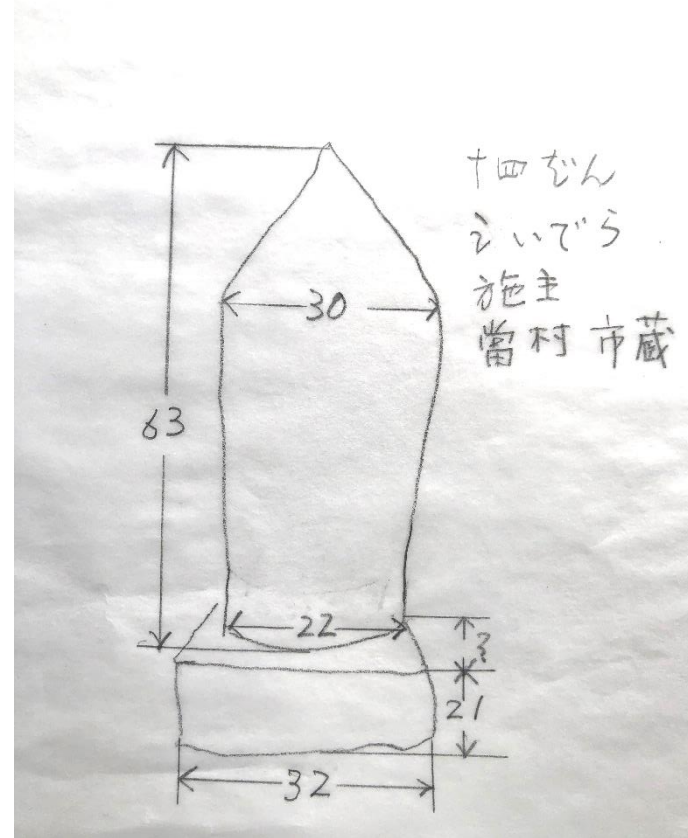 十四ばん
せいでら
施主
當村 市蔵
30
63
22
3
21
32